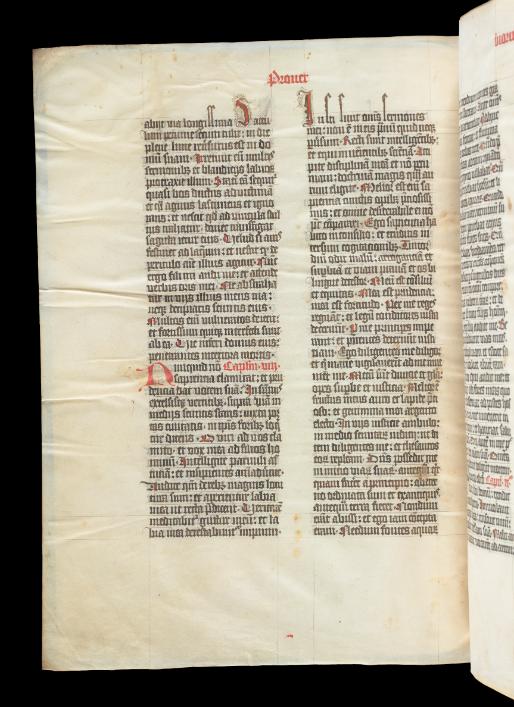 Prouer
abijt via longissima Saccu
lum pecunie secum tulit: in die
plene lune reuersurus est in do
mū suam. Irretiuit eū multis
sermonibꝫ et blandicijs labioꝝ
protraxit illum. Statī eā sequit̄
quasi bos ductus ad uictimā
et q̄si agnus lasciuiens et igno
rans: et nescit qd̄ ad uincula stul
tus trahatur: donec transfigat
sagitta iecur eius. Velud si auis
festinet ad laqueū: et nescit qr̄ de
periculo aīe illius agitur. Nūc
ergo fili mi audi me: et attende
verbis oris mei. Ne abstraha
tur in uijs illius mens tua:
neqꝫ decipiaris semitis eius.
Multos enī uulneratos deiecit:
et fortissimi quiqꝫ interfecti sunt
ab ea. Vie inferi domus eius:
penetrantes interiora mortis.
Nunquid nō Caplm̄ viij.
sapientia clamitat: et pru
dencia dat vocem suā. In sūmis
excelsisqꝫ verticibꝫ. supra viā in
medijs semitis stans: iuxta por
tas ciuitatis. in ipis foribꝫ loq̄
tur dicens. O viri ad vos cla
mito: et vox mea ad filios ho
minū. Intelligite paruuli as
tuciā: et insipientes aīaduertite.
Audite qm̄ de rebꝫ magnis locu
tura sum: et aperientur labia
mea ut recta p̄dicent. Veritatē
meditabit̄ guttur meū: et la
bia mea detestabunt̄ impium.
Iusti sunt om̄s sermones
mei: non ē in eis prauū quid neqꝫ
peruersum. Recti sunt intelligentibꝫ:
et equi inueniētibꝫ sciētiā. Ac
cipite disciplinā meā et nō pecu
niam: doctrinā magis quā au
rum eligite. Melior est enī sa
pientia cunctis opibꝫ p̄ciosissi
mis: et omne desiderabile ei nō
pōt cōparari. Ego sapientia ha
bito in consilio: et eruditis in
tersum cogitationibꝫ. Timor
dn̄i odit malū: arrogantiā et
superbiā et viam prauā et os bi
lingue detestor. Meū est cōsiliū
et equitas. Mea est prudentia.
mea est fortitudo. Per me reges
regnāt: et legū conditores iusta
decernūt. Per me principes impe
rant: et potentes decernūt iusti
tiam. Ego diligentes me diligo:
et q̄ mane vigilauerīt ad me inue
nient me. Mecū sūt diuicie et gl̄a:
opes supbe et iusticia. Melior ē
fructus meus auro et lapide p̄ci
oso: et genimina mea argento
electo. In vijs iusticie ambulo:
in medio semitaꝝ iudicij: ut di
tem diligentes me: et thesauros
eoꝝ repleam. Dn̄s possedit me
in inicio viaꝝ suaꝝ: anteq̄ꝫ qc
quam faceret a principio: ab eter
no ordinata sum et ex antiquis
anteqm̄ terra fieret. Nondum
erāt abissi: et ego iam cōcepta
eram. Necdum fontes aquaꝝ